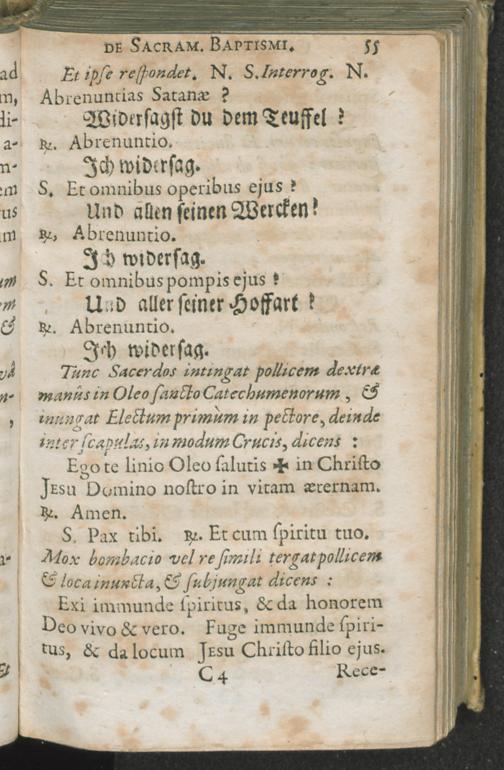 DE SACRAM. BAPTISMI. 55
Et ipſe reſpondet. N. S. Interrog. N.
Abrenuntias Satanæ ?
Widerſagſt du dem Teuffel ?
℞. Abrenuntio.
Ich widerſag.
S. Et omnibus operibus ejus ?
Und allen ſeinen Wercken?
℞, Abrenuntio.
Ich widerſag.
S. Et omnibus pompis ejus ?
Und aller ſeiner Hoffart ?
℞. Abrenuntio.
Ich widerſag.
Tunc Sacerdos intingat pollicem dextræ
manûs in Oleo ſancto Catechumenorum, &
inungat Electum primùm in pectore, deinde
inter ſcapulas, in modum Crucis, dicens :
Ego te linio Oleo ſalutis ✠ in Chriſto
JESU Domino noſtro in vitam æternam.
℞. Amen.
S. Pax tibi. ℞. Et cum ſpiritu tuo.
Mox bombacio vel re ſimili tergat pollicem
& loca inuncta, & ſubjungat dicens :
Exi immunde ſpiritus, & da honorem
Deo vivo & vero. Fuge immunde ſpiri-
tus, & da locum Jesu Chriſto filio ejus.
C 4 Rece-